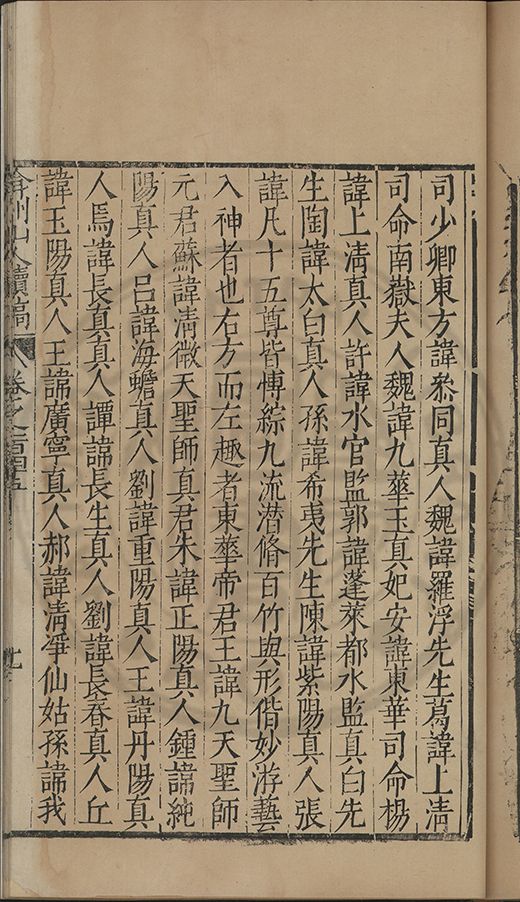 司少卿東方諱叅同真人魏諱羅浮先生葛諱上清
司命南嶽夫人魏諱九華玉真妃安諱東華司命楊
諱上清真人許諱水官監郭諱蓬萊都水監真白先
生陶諱太白真人孫諱希夷先生陳諱紫陽真人張
諱凡十五尊皆愽綜九流潜脩百竹與形偕妙游藝
入神者也右方而左趣者東華帝君王諱九天聖師
元君蘇諱清微天聖師真君朱諱正陽真人鍾諱純
陽真人呂諱海蟾真人劉諱重陽真人王諱丹陽真
人馬諱長真真人譚諱長生真人劉諱長春真人丘
諱玉陽真人王諱廣寧真人郝諱清凈仙姑孫諱我
弇州山人續稿
卷之